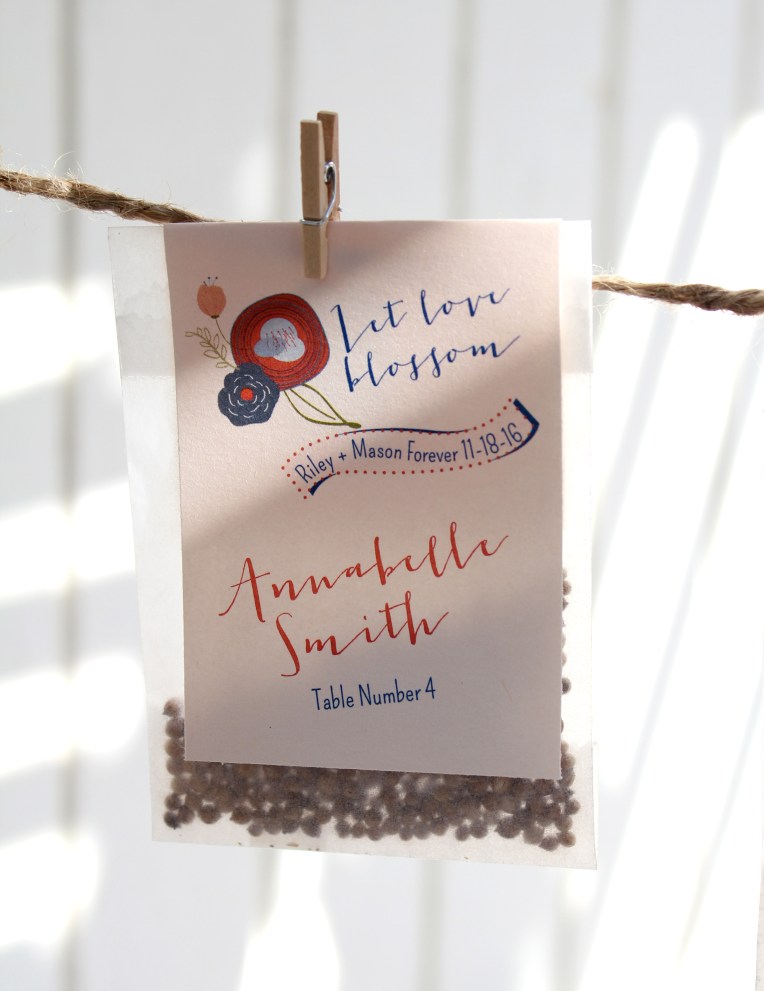 Let love
blossom
Riley + Mason Forever 11-18-16
Annabelle
Smith
Table Number 4